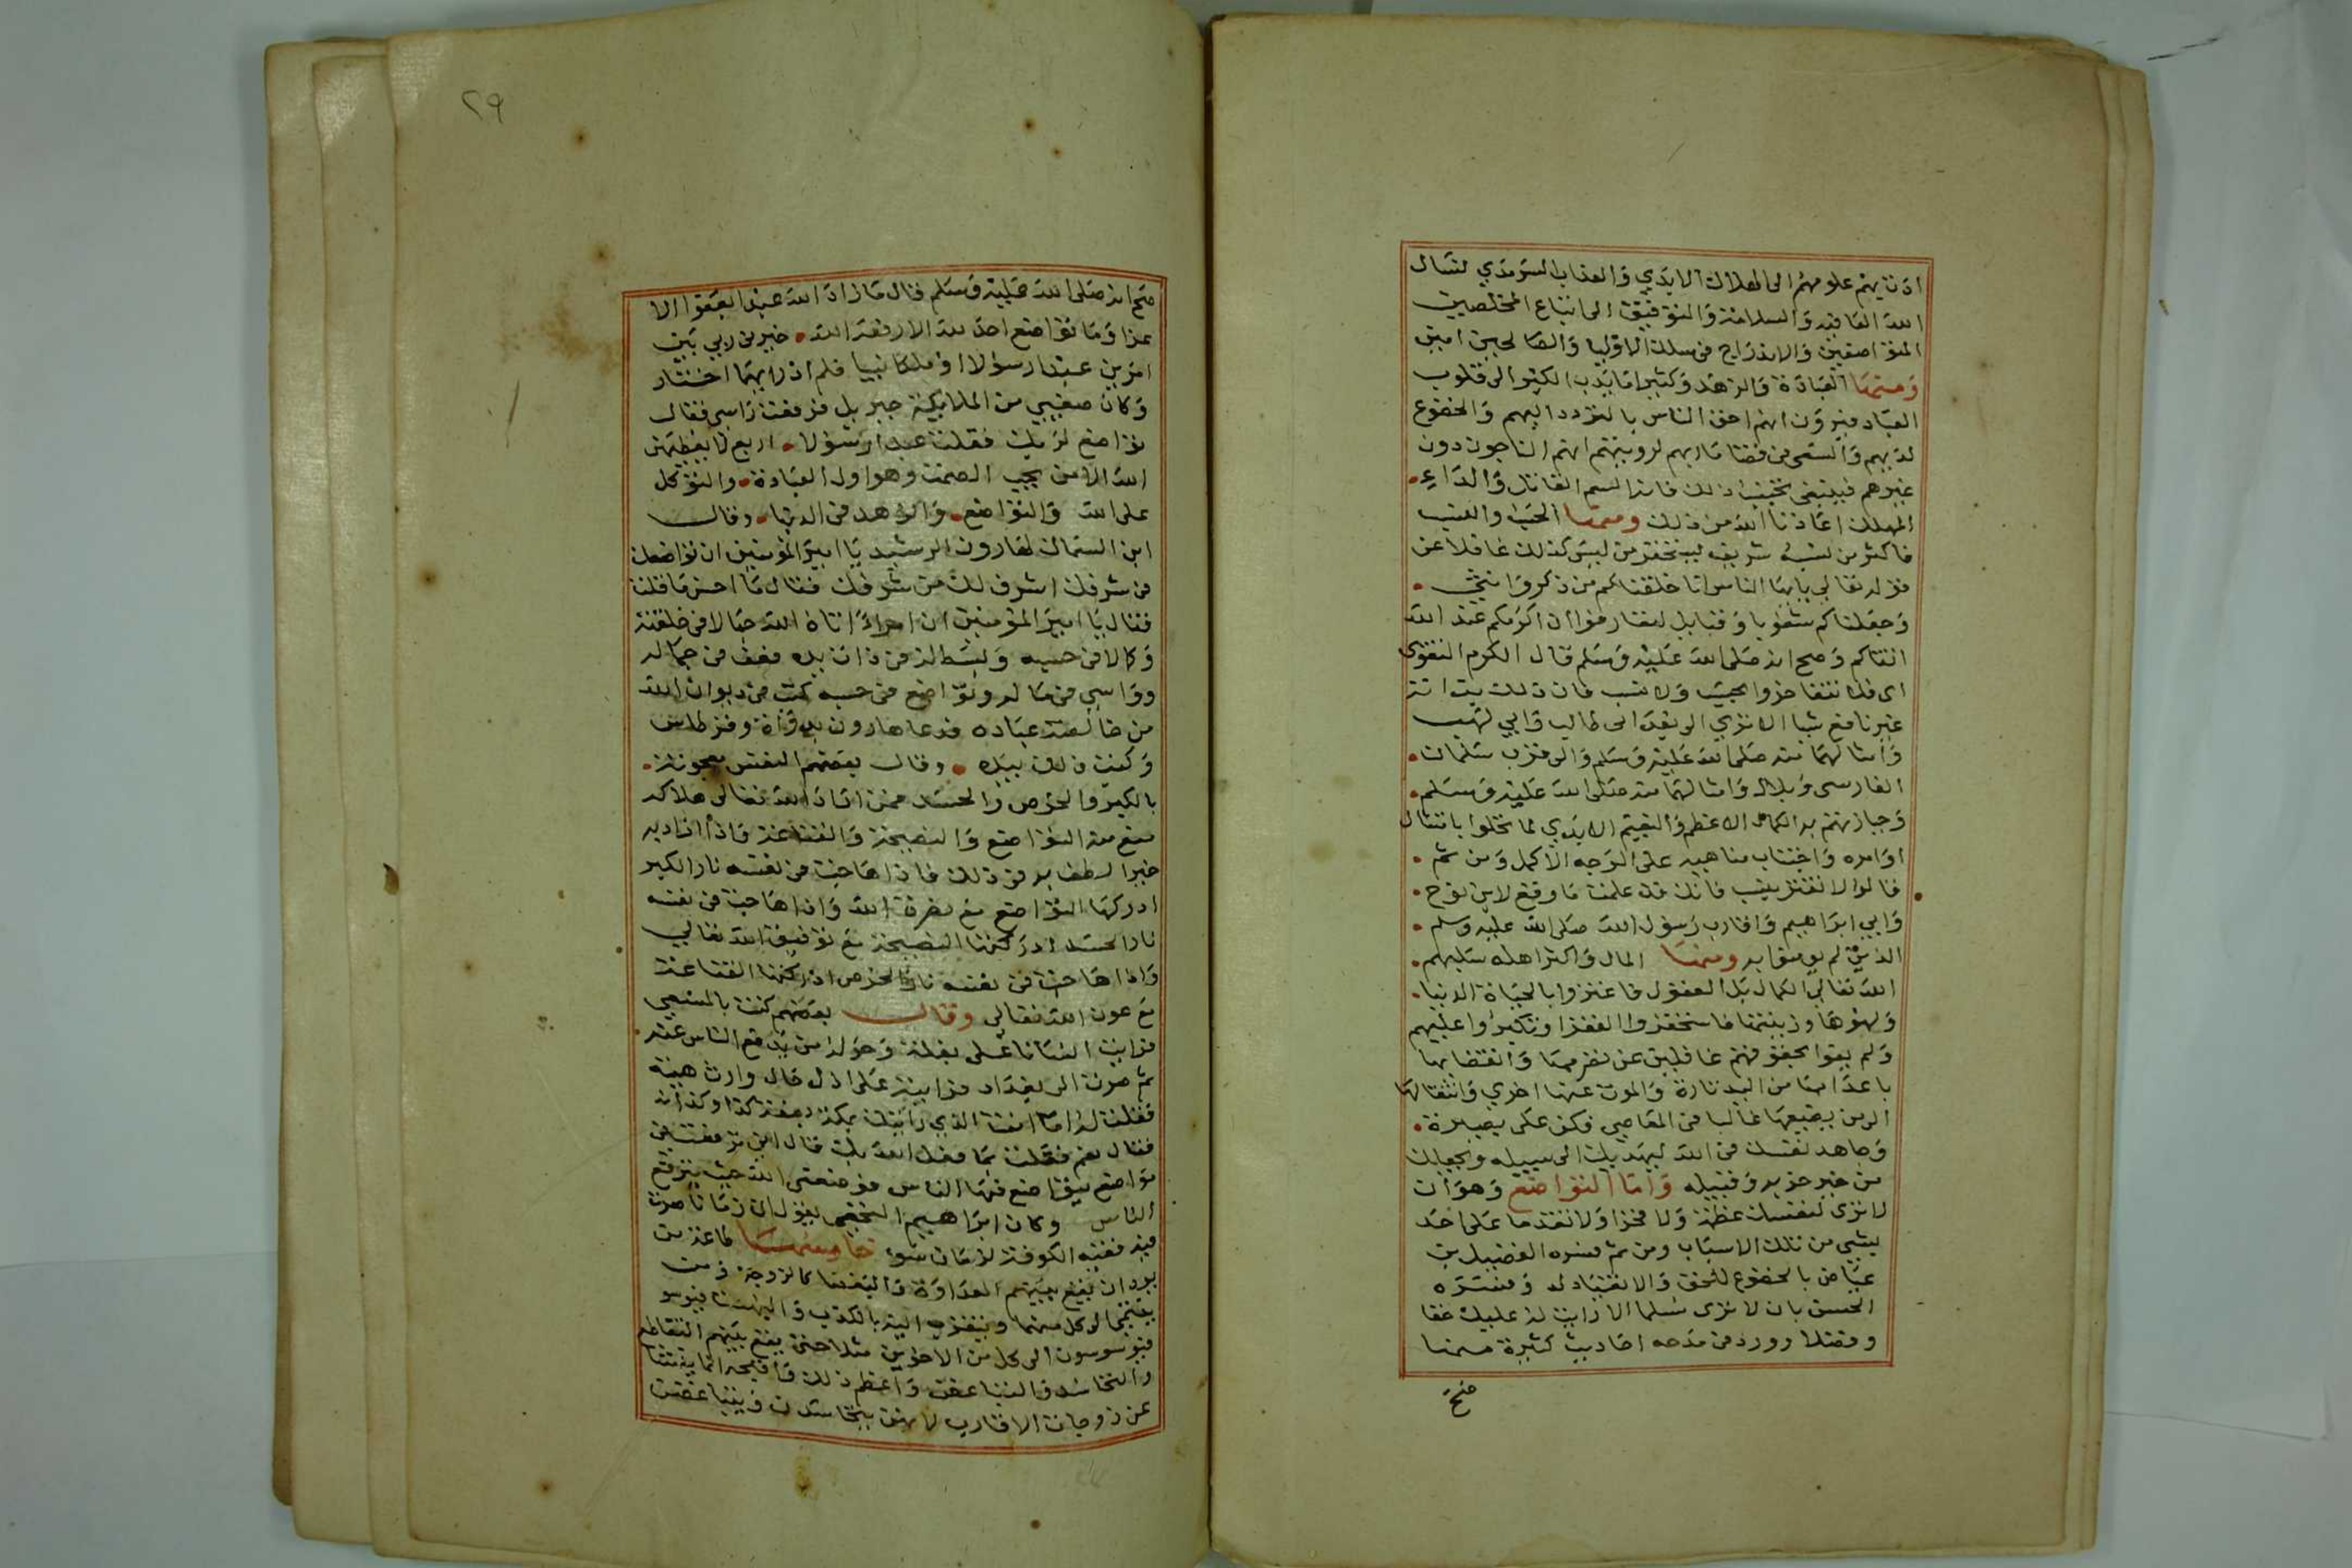 ادتا يهم علومهم الى الهلاك الابدي والعذاب السرمدي لنسال
الله العافيه والسلامة والتوفيق الى اتباع المخلصين
المتواضعين والاندراج في سلك الاوليا والصالحين امين
ومنها العبادة والزهد وكثيرا ما يدب الكبر الى قلوب
العباد فيرون انهم احق الناس بالتردد اليهم والخضوع
لديهم والسعي في قضا ماربهم لرويتهم انهم الناجون دون
غيرهم فينبغي تجنب ذلك فانه السم القاتل والداء
المهلك اعاذنا الله من ذلك ومنها الحسب والنسب
فاكثر من نسبه شريف يستحقر من ليس كذلك غافلا عن
قوله تعالي يايها الناس انا خلقناكم من ذكر وانثي
وجعلناكم شعوبا وقبايل لتعارفوا ان اكرمكم عند الله
اتقاكم وصح انه صلى الله عليه وسلم قال الكرم التقوى
اى فلا تتفاخروا بحسب ولا نسب فان ذلك بذاته
غير نافع شيا الا تري الى بعد ابى طالب وابي لهب
وامثالهما منه صلى الله عليه وسلم والى قرب سلمان
الفارسى وبلال وامثالهما منه صلى الله عليه وسلم
وحيازتهم به الكمال الاعظم والنعيم الابدي لما تحلوا بامتثال
اوامره واجتناب مناهيه على الوجه الاكمل ومن ثم
قالوا لا تغتر بنسب فانك قد علمت ما وقع لابن نوح
وابي ابراهيم واقارب رسول الله صلى الله عليه وسلم
الذين لم يومنوا به ومنها المال واكثر اهله سلبهم
الله تعالي الكمال بل العقول فاغتروا بالحياة الدنيا
ولهوها وزينتها فاستحقروا الفقرا وتكبروا عليهم
ولم يفوا بحقوقهم غافلين عن تصرمها وانقضايها
باعدامها من اليد تارة والموت عنها اخري وانتقالها
الى من يضيعها غالبا في المعاصي فكن على بصيرة
وجاهد نفسك في الله ليهديك الى سبيله ويجعلك
من خير حزبه وقبيله واما التواضع وهو ان
لا ترى لنفسك عظمة ولا فخرا ولا تقدما على احد
بشي من تلك الاسباب ومن ثم فسره الفضيل بن
عياض بالخضوع للحق والانقياد له وفسره
الحسن بان لا ترى مسلما الا رايت له عليك حقا
وفضلا وورد في مدحه احاديث كثيرة منها
صح
٢٩
صح انه صلى الله عليه وسلم قال ما زاد الله عبدا بعفو الا
عزا وما تواضع احد لله الا رفعه الله خيرني ربي بين
امرين عبدا رسولا او ملكا نبيا فلم ادر ايهما اختار
وكان صفيي من الملايكة جبريل فرفعت راسي فقال
تواضع لربك فقلت عبدا رسولا اربع لا يعطيهن
الله الا من يحب الصمت وهو اول العبادة والتوكل
على الله والتواضع والزهد في الدنيا وقال
ابن السماك لهارون الرشيد يا امير المؤمنين ان تواضعك
في شرفك اشرف لك من شرفك فقال ما احسن ما قلت
فقال يا امير المؤمنين ان امراء اتاه الله جمالا في خلقته
وكمالا في حسبه وبسط له في ذات يده فعف في جماله
وواسي في ماله وتواضع في حسبه كتب في ديوان الله
من خالصة عباده فدعا هارون بدواة وقرطاس
وكتب ذلك بيده وقال بعضهم النفس معجونة
بالكبر والحرص والحسد فمن اراد الله تعالى هلاكه
منع منه التواضع والنصيحة والقناعة واذا اراد به
خيرا لطف به في ذلك فاذا هاجت في نفسه نار الكبر
ادركها التواضع مع نصرة الله واذا هاجت في نفسه
نار الحسد ادركتها النصيحة مع توفيق الله تعالي
واذا هاجت في نفسه نار الحرص ادركتها القناعة
مع عون الله تعالى وقال بعضهم كنت بالمسعي
فرايت انسانا على بغلة وحوله من يدفع الناس عنه
ثم صرت الى بغداد فرايته على اذل حال وارث هيئة
فقلت له اما انت الذي رايتك بمكة بصفة كذا وكذا
فقال نعم فقلت بما فعل الله بك قال اني ترفعت في
مواضع يتواضع فيها الناس فوضعني الله حيث يترفع
الناس وكان ابراهيم النخعي يقول ان زمانا صرت
فيه فقيه الكوفة لزمان سوء خامسها
بد ان يقع بينهم العداوة والبغضا كالزوجة ومن
ينتمي الى كل منها ويتقرب اليه بالكذب والبهتان
فيوسوسون الى كل من الاخوين مثلا حتى يقع بينهم التقاطع
والتحاسد والتباغض واعظم ذلك واقبحه انما ينشا
عن زوجات الاقارب لانهن يتحاسدن ويتباغضن